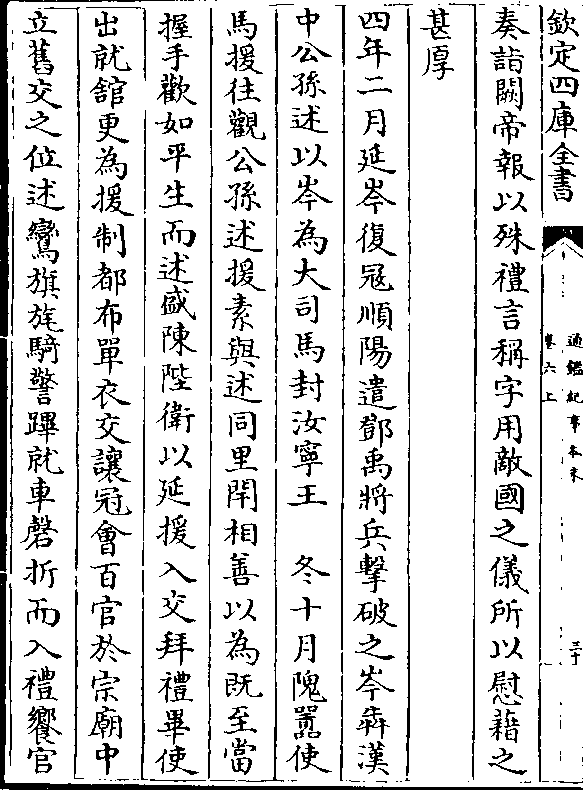 欽定四庫全書
通鑑紀事本末
卷六上
三十
奏詣闕帝報以殊禮言稱字用敵國之儀所以慰藉之
甚厚
四年二月延岑復冦順陽遣鄧禹將兵擊破之岑犇漢
中公孫述以岑為大司馬封汝寧王　冬十月隗囂使
馬援往觀公孫述援素與述同里閈相善以為既至當
握手歡如平生而述盛陳陛衛以延援入交拜禮畢使
出就舘更為援制都布單衣交讓冠會百官於宗廟中
立舊交之位述鸞旗旄騎警蹕就車磬折而入禮饗官